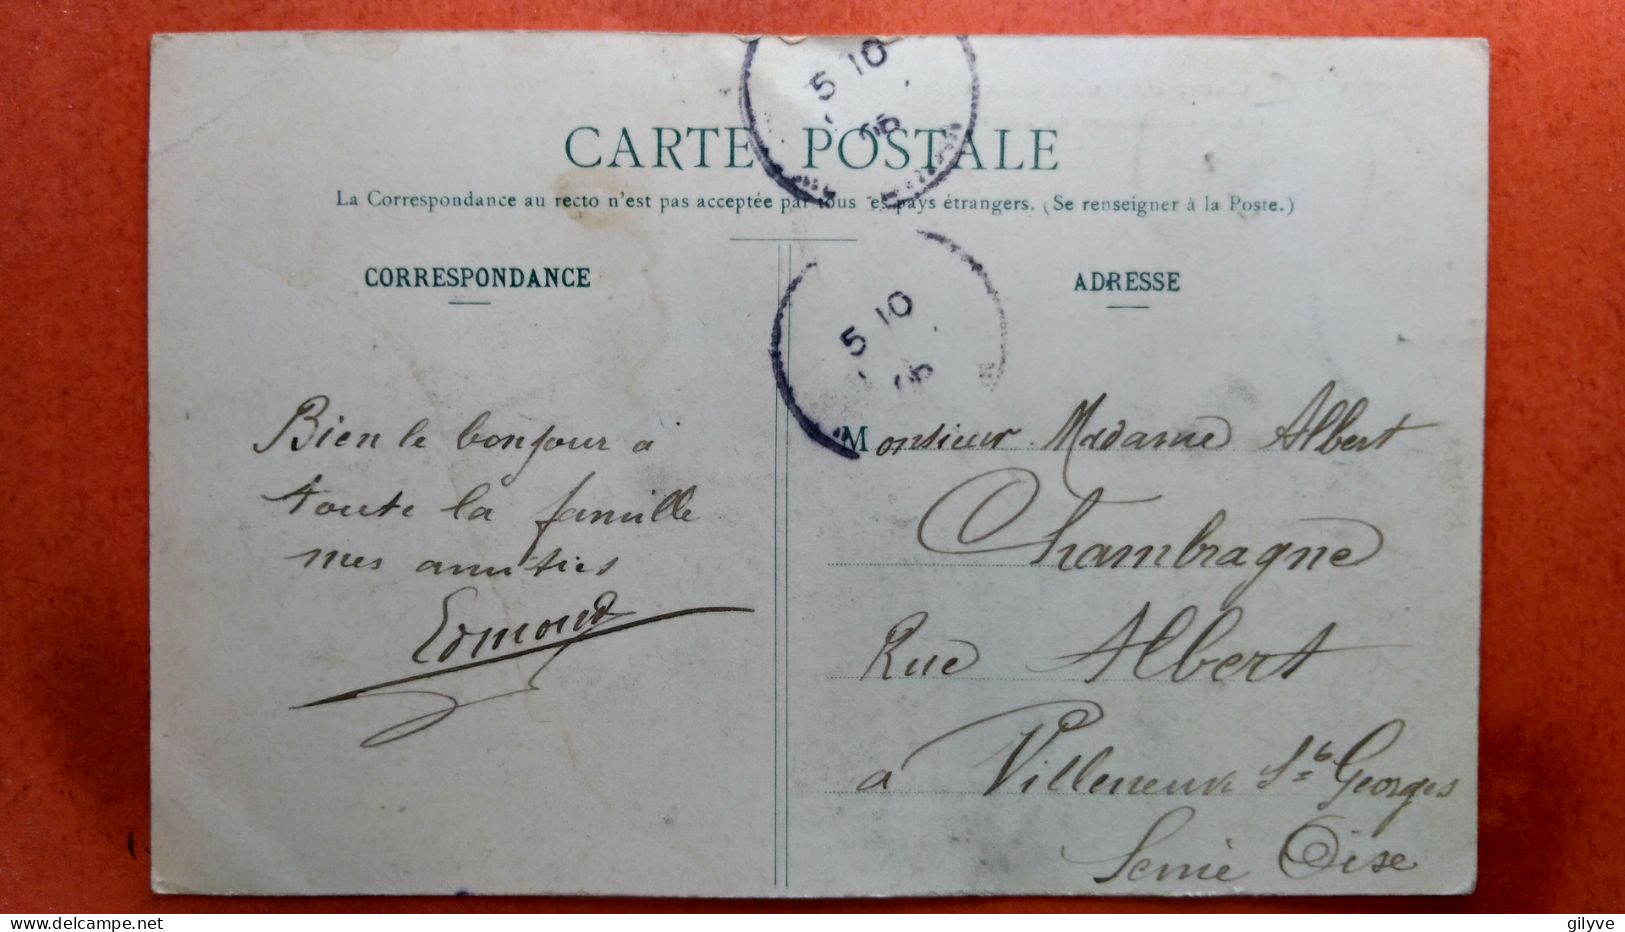 5 10
05
CARTE POSTALE
La Correspondance au recto n'est pas acceptée par tous les pays étrangers. (Se renseigner à la Poste.)
CORRESPONDANCE
ADRESSE
5 10
05
Bien le bonjour a
toute la famille
mes amitiés
Edmond
Monsieur Madame Albert
Chambragne
Rue Albert
a Villeneuve St Georges
Seine Oise
gilyve